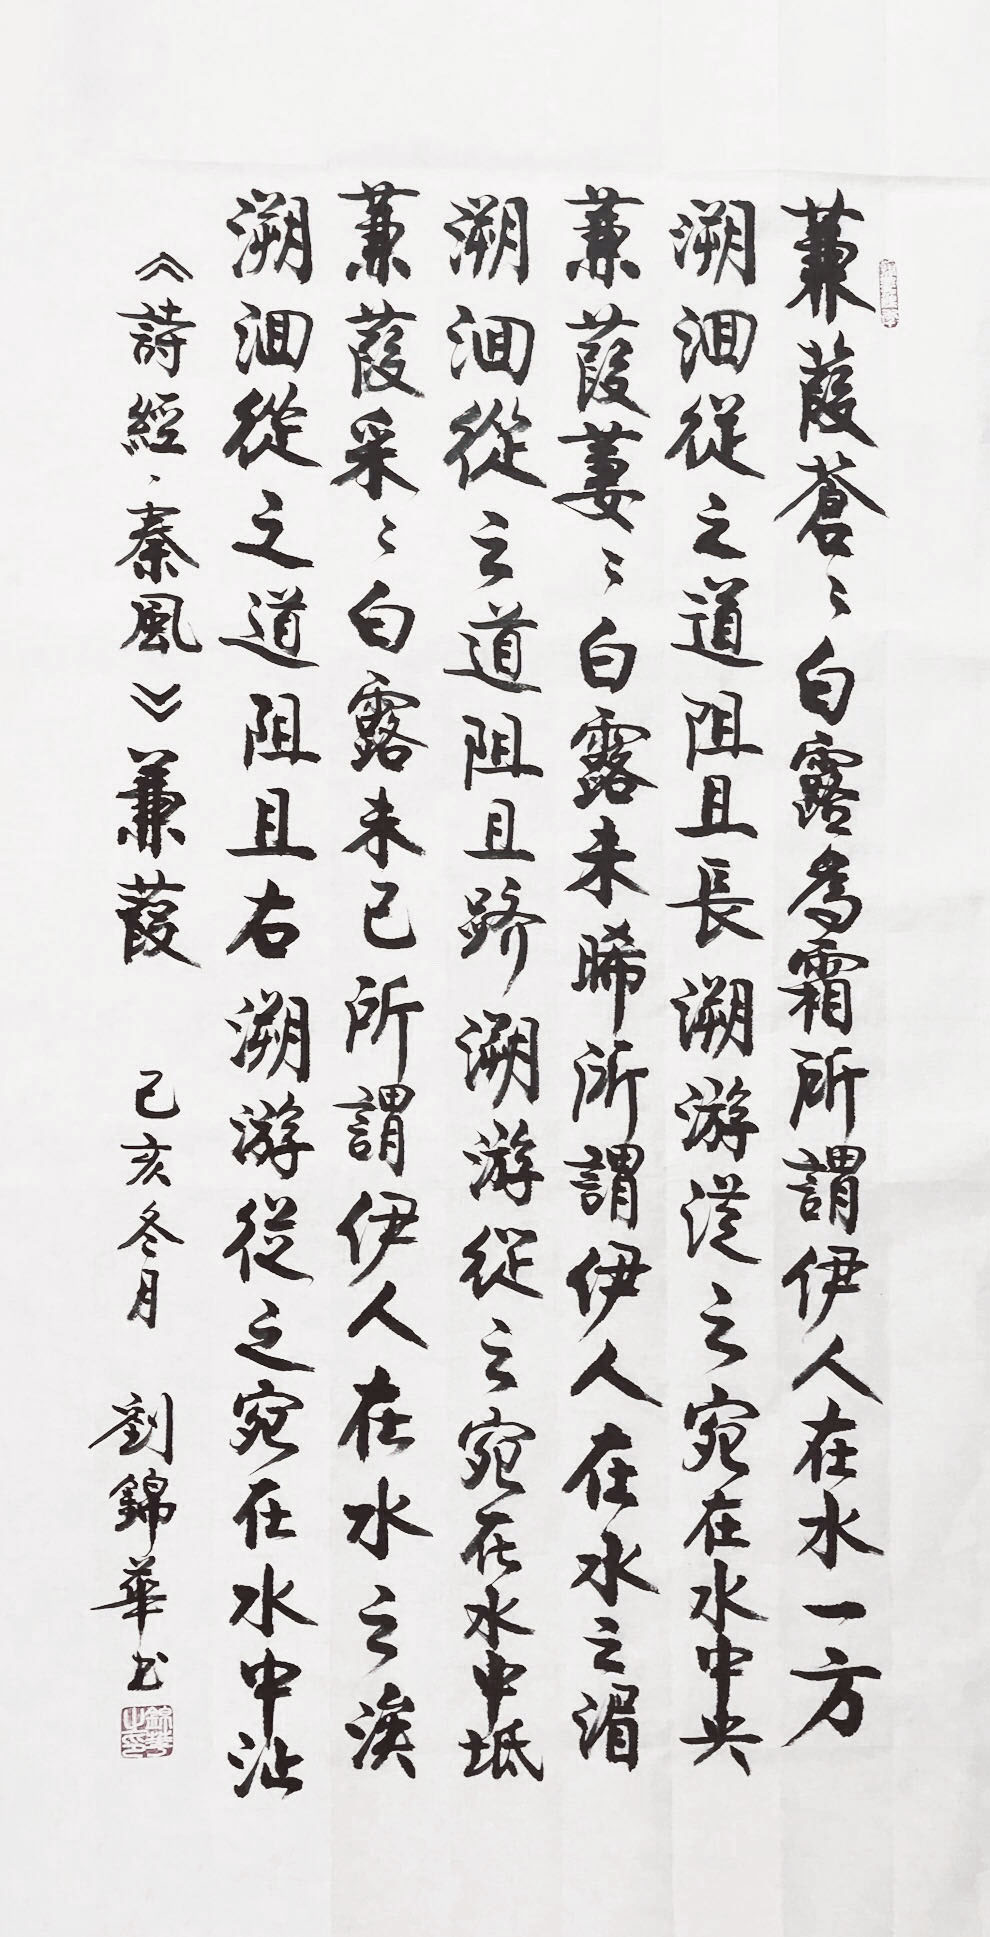 蒹葭蒼〻白露為霜所謂伊人在水一方
溯洄從之道阻且長溯游從之宛在水中央
蒹葭萋〻白露未晞所謂伊人在水之湄
溯洄從之道阻且躋溯游從之宛在水中坻
蒹葭采〻白露未已所謂伊人在水之涘
溯洄從之道阻且右溯游從之宛在水中沚
《詩經·秦風》蒹葭 己亥冬月 劉錦華书
錦華之印